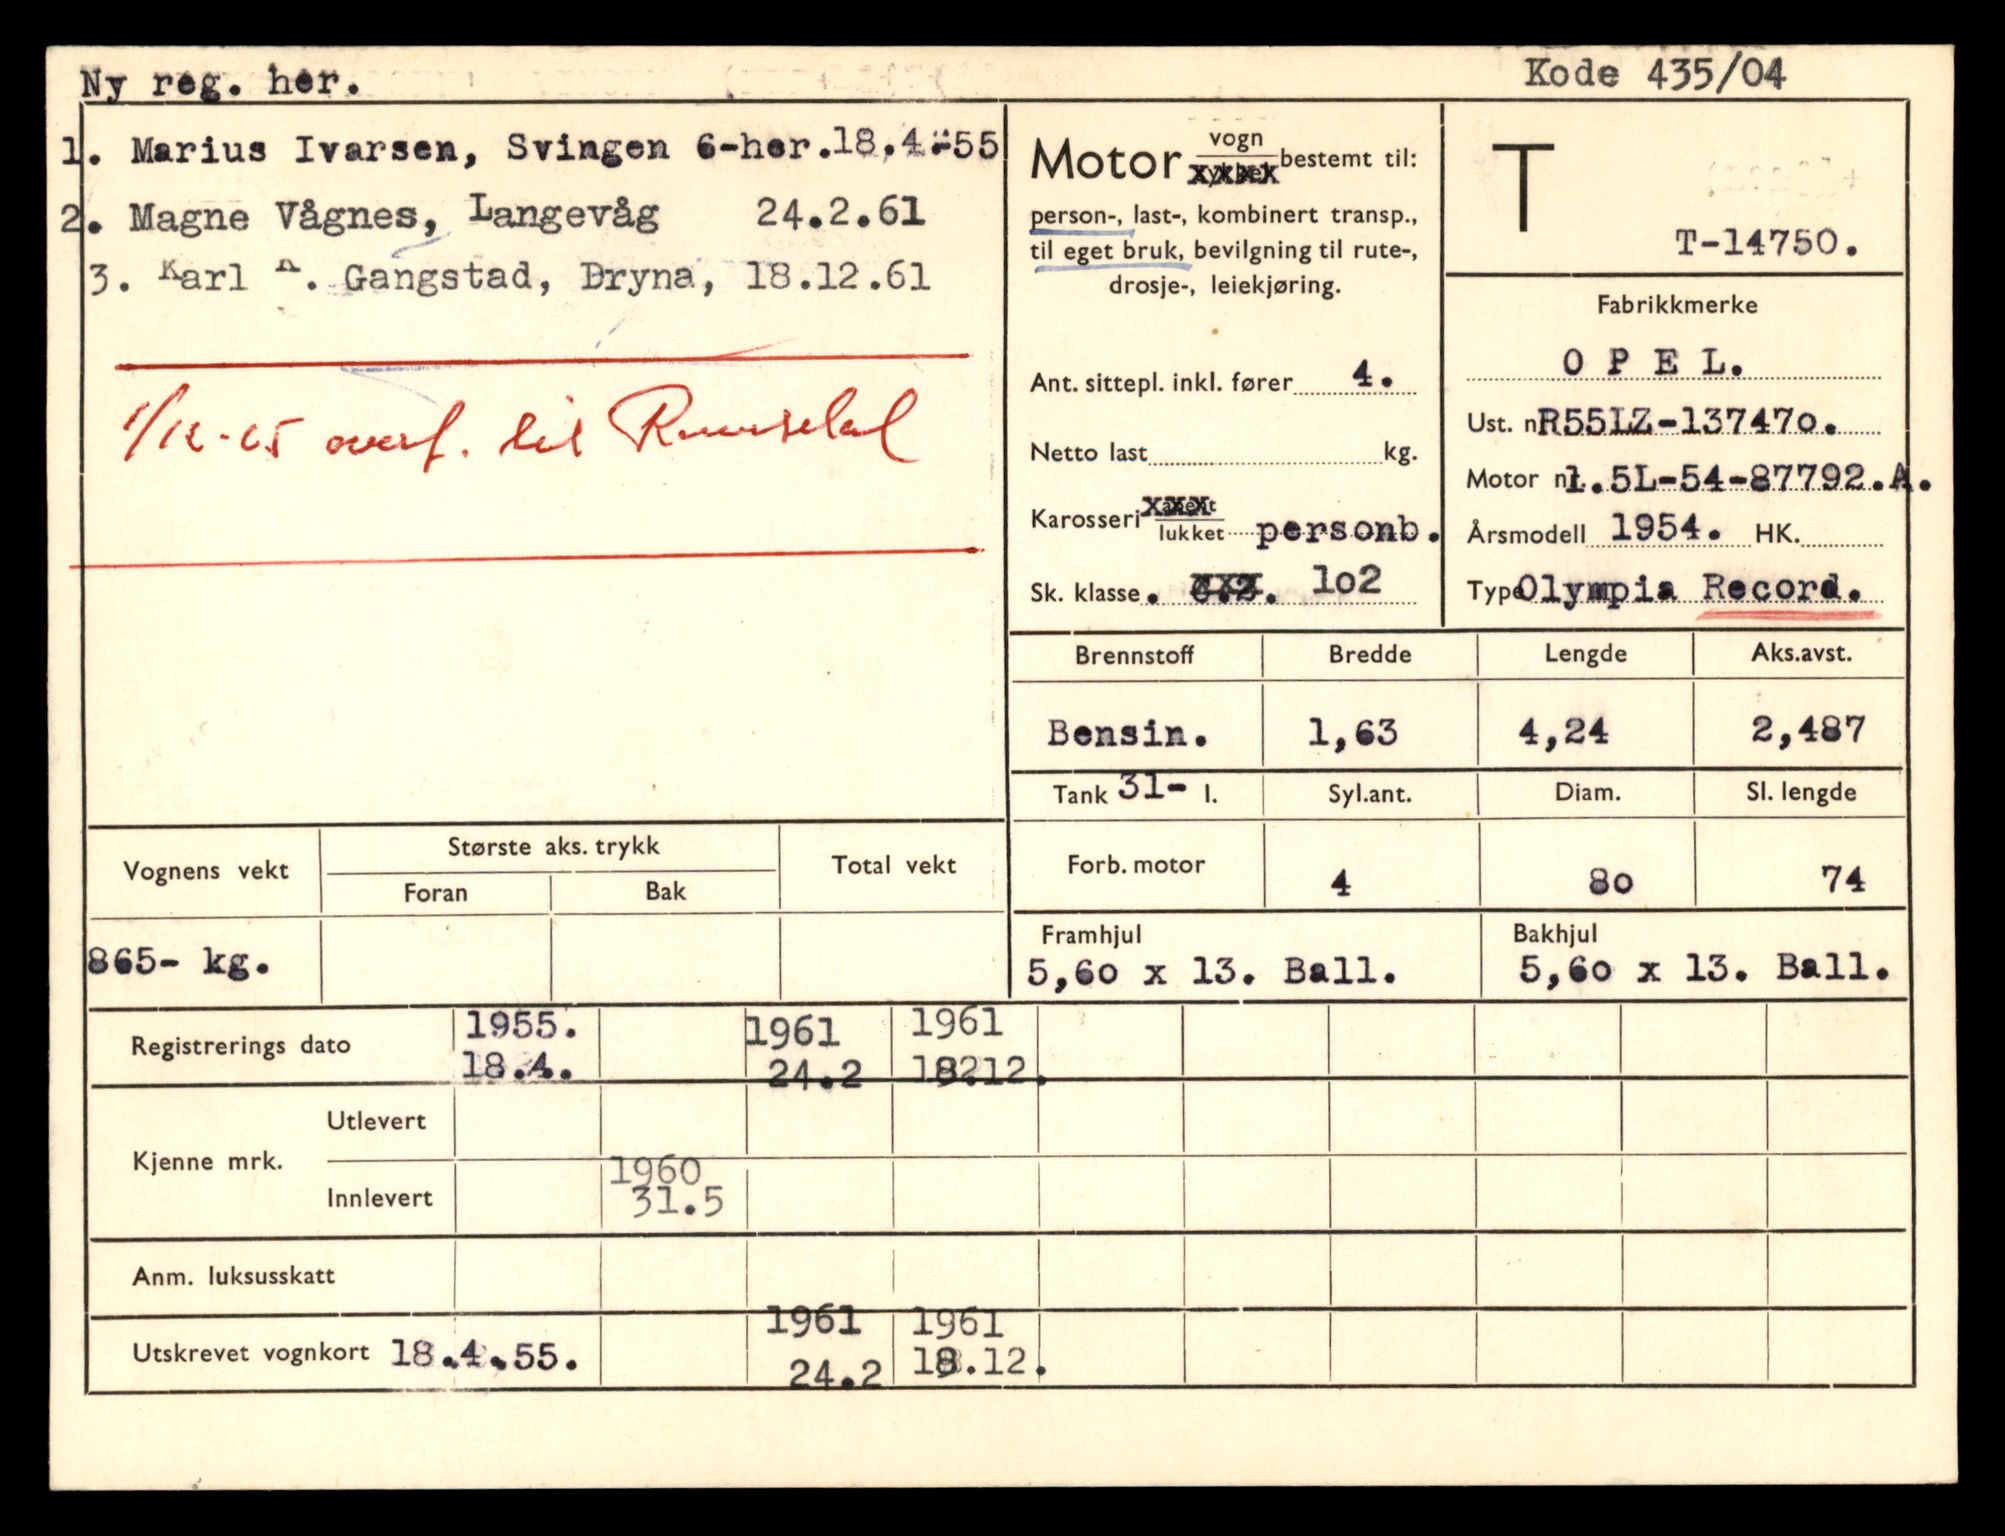 Ny reg. her.
Kode 435/04
1. Marius Ivarsen, Svingen 6-her.18.4.-55
2. Magne Vågnes, Langevåg 24.2.61
3. Karl K. Gangstad, Dryna, 18.12.61
1/12-65 overf. til Romsdal
Motor vogn bestemt til:
person-, last-, kombinert transp.,
til eget bruk, bevilgning til rute-,
drosje-, leiekjøring.
Ant. sittepl. inkl. fører 4.
Netto last kg.
Karosseri xxxx lukket personb.
Sk. klasse. 102
T
T-14750.
Fabrikkmerke
O P E L.
Ust. nR55LZ-137470.
Motor nr.1.5L-54-87792.A.
Årsmodell 1954. HK.
Type Olympia Record.
Brennstoff Bredde Lengde Aks.avst.
Bensin. 1,63 4,24 2,487
Tank 31- l. Syl.ant. Diam. Sl. lengde
Forb. motor 4 80 74
Framhjul Bakhjul
5,60 x 13. Ball. 5,60 x 13. Ball.
Vognens vekt Største aks. trykk Total vekt
Foran Bak
865- kg.
Registrerings dato 1955. 1961 1961
18.4. 24.2 18.12.
Kjenne mrk.
Utlevert
Innlevert 1960
31.5
Anm. luksusskatt
Utskrevet vognkort 18.4.55. 1961 1961
24.2 18.12.